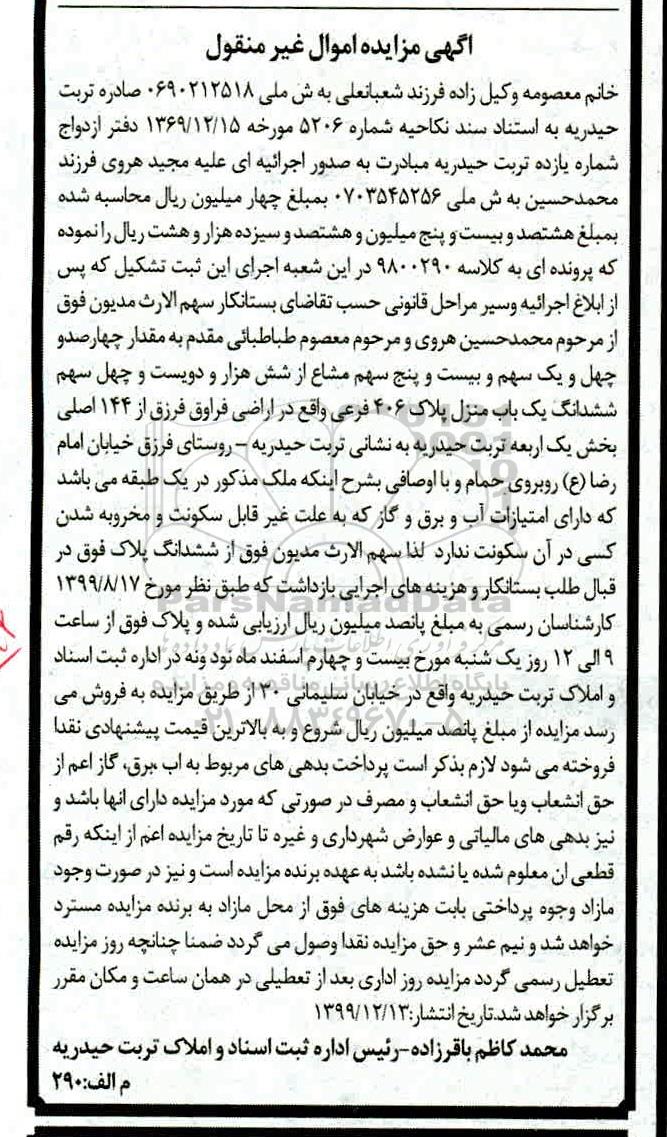 آگهی مزایده اموال غیر منقول
خانم معصومه وکیل زاده فرزند شعبانعلی به ش ملی ۰۶۹۰۲۱۲۵۱۸ صادره تربت
حیدریه به استناد سند نکاحیه شماره ۵۲۰۶ مورخه ۱۳۶۹/۱۲/۱۵ دفتر ازدواج
شماره یازده تربت حیدریه مبادرت به صدور اجرائیه ای علیه مجید هروی فرزند
محمدحسین به ش ملی ۰۷۰۳۵۴۵۲۵۶ بمبلغ چهار میلیون ریال محاسبه شده
بمبلغ هشتصد و بیست و پنج میلیون و هشتصد و سیزده هزار و هشت ریال را نموده
که پرونده ای به کلاسه ۹۸۰۰۲۹۰ در این شعبه اجرای این ثبت تشکیل که پس
از ابلاغ اجرائیه وسیر مراحل قانونی حسب تقاضای بستانکار سهم الارث مدیون فوق
از مرحوم محمدحسین هروی و مرحوم معصوم طباطبائی مقدم به مقدار چهارصدو
چهل و یک سهم و بیست و پنج سهم مشاع از شش هزار و دویست و چهل سهم
ششدانگ یک باب منزل پلاک ۴۰۶ فرعی واقع در اراضی فراوق فرزق از ۱۴۴ اصلی
بخش یک اربعه تربت حیدریه به نشانی تربت حیدریه – روستای فرزق خیابان امام
رضا (ع) روبروی حمام و با اوصافی بشرح اینکه ملک مذکور در یک طبقه می باشد
که دارای امتیازات آب و برق و گاز که به علت غیر قابل سکونت و مخروبه شدن
کسی در آن سکونت ندارد لذا سهم الارث مدیون فوق از ششدانگ پلاک فوق در
قبال طلب بستانکار و هزینه های اجرایی بازداشت که طبق نظر مورخ ۱۳۹۹/۸/۱۷
کارشناسان رسمی به مبلغ پانصد میلیون ریال ارزیابی شده و پلاک فوق از ساعت
۹ الی ۱۲ روز یک شنبه مورخ بیست و چهارم اسفند ماه نود ونه در اداره ثبت اسناد
و املاک تربت حیدریه واقع در خیابان سلیمانی ۳۰ از طریق مزایده به فروش می
رسد مزایده از مبلغ پانصد میلیون ریال شروع و به بالاترین قیمت پیشنهادی نقدا
فروخته می شود لازم بذکر است پرداخت بدهی های مربوط به اب ،برق، گاز اعم از
حق انشعاب ویا حق انشعاب و مصرف در صورتی که مورد مزایده دارای انها باشد و
نیز بدهی های مالیاتی و عوارض شهرداری و غیره تا تاریخ مزایده اعم از اینکه رقم
قطعی ان معلوم شده یا نشده باشد به عهده برنده مزایده است و نیز در صورت وجود
مازاد وجوه پرداختی بابت هزینه های فوق از محل مازاد به برنده مزایده مسترد
خواهد شد و نیم عشر و حق مزایده نقدا وصول می گردد ضمنا چنانچه روز مزایده
تعطیل رسمی گردد مزایده روز اداری بعد از تعطیلی در همان ساعت و مکان مقرر
برگزار خواهد شد.تاریخ انتشار:۱۳۹۹/۱۲/۱۳
محمد کاظم باقرزاده-رئیس اداره ثبت اسناد و املاک تربت حیدریه
م الف:۲۹۰
ParsNamadData
پایگاه اطلاع رسانی مناقصه و مزایده
۰۲۱-۸۸۳۴۹۶۷۰-۵